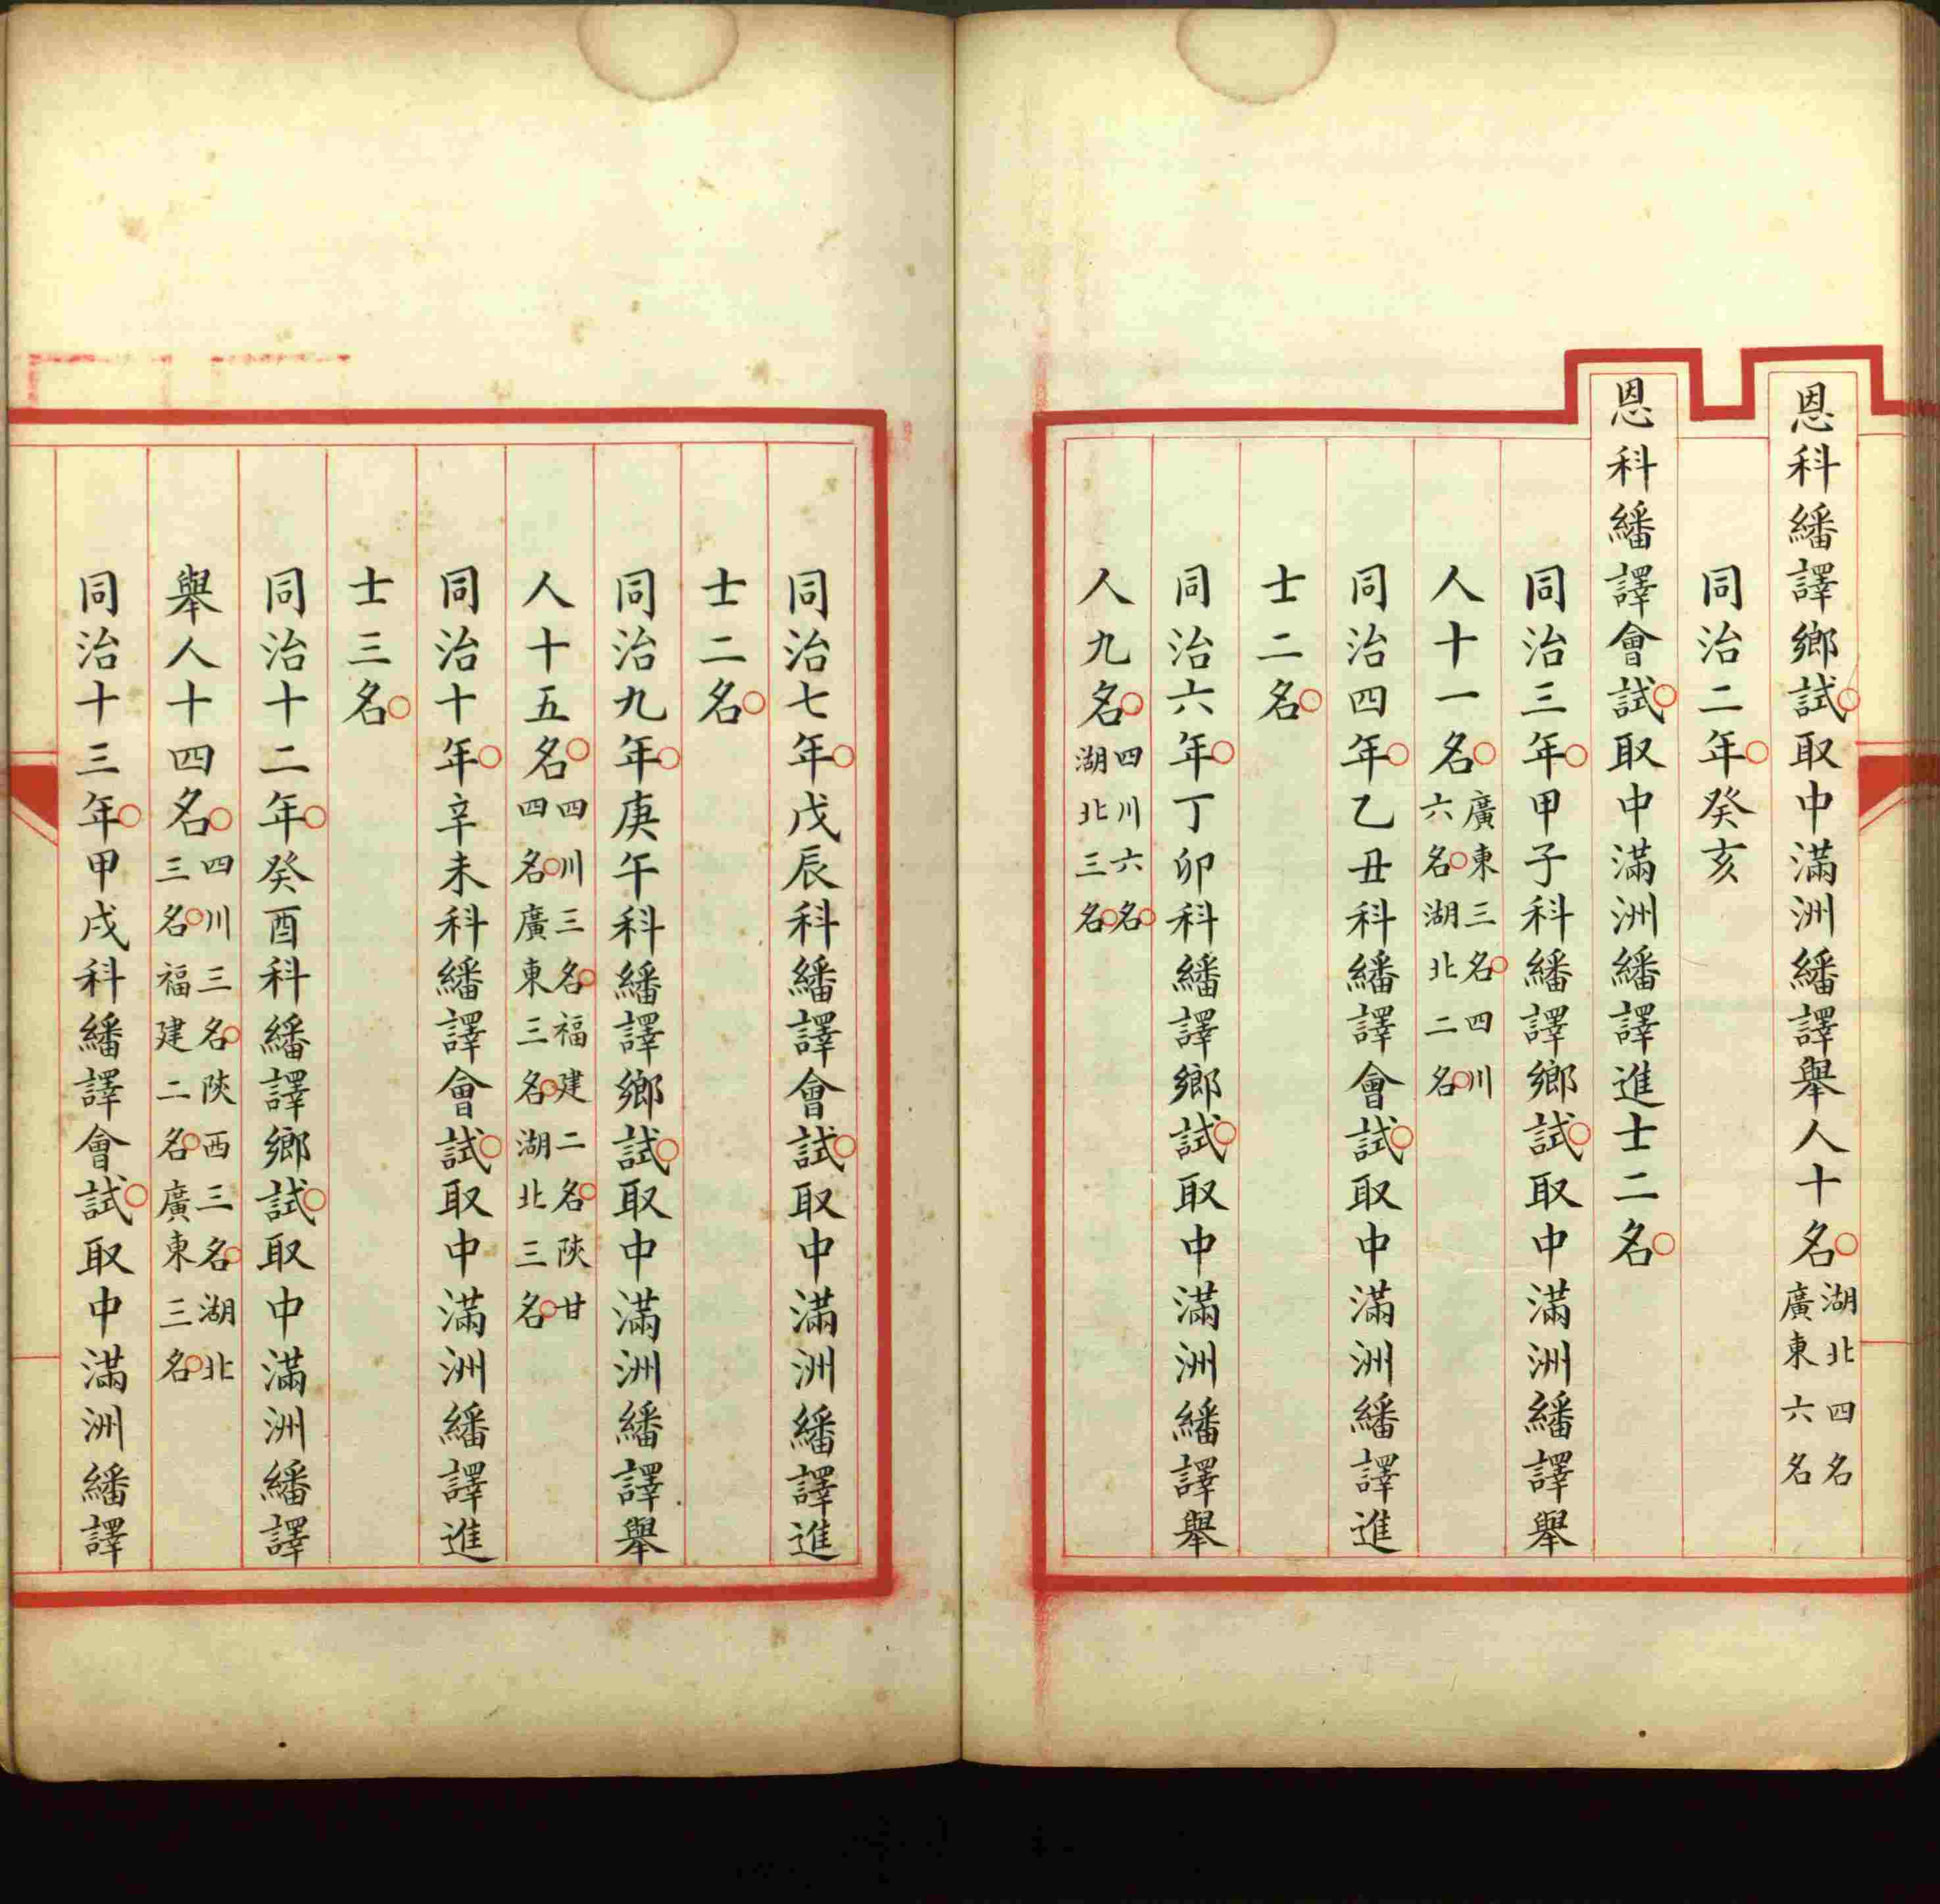 恩科繙譯鄉試取中滿洲繙譯舉人十名湖北四名廣東六名
同治二年癸亥
恩科繙譯會試取中滿洲繙譯進士二名
同治三年甲子科繙譯鄉試取中滿洲繙譯舉
人十一名廣東三名四川六名湖北二名
同治四年乙丑科繙譯會試取中滿洲繙譯進
士二名
同治六年丁卯科繙譯鄉試取中滿洲繙譯舉
人九名四川六名湖北三名
同治七年戊辰科繙譯會試取中滿洲繙譯進
士二名
同治九年庚午科繙譯鄉試取中滿洲繙譯舉
人十五名四川三名福建二名陝甘四名廣東三名湖北三名
同治十年辛未科繙譯會試取中滿洲繙譯進
士三名
同治十二年癸酉科繙譯鄉試取中滿洲繙譯
舉人十四名四川三名陝西三名湖北三名福建二名廣東三名
同治十三年甲戌科繙譯會試取中滿洲繙譯